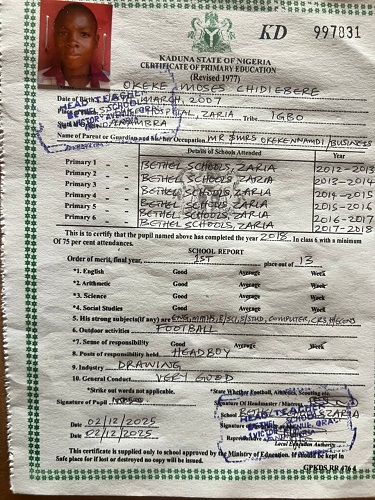 KD 997831
KADUNA STATE OF NIGERIA
CERTIFICATE OF PRIMARY EDUCATION
(Revised 1977)
OKEKE MOSES CHIDIEBERE
Date of Birth MARCH, 2007
ZARIA Tribe IGBO
ANAMBRA
Name of Parent or Guardian and his Occupation MR & MRS OKEKE NNAMDI / BUSINESS
Details of Schools Attended Year
Primary 1 - BETHEL SCHOOLS, ZARIA 2012-2013
Primary 2 - BETHEL SCHOOLS, ZARIA 2013-2014
Primary 3 - BETHEL SCHOOLS, ZARIA 2014-2015
Primary 4 - BETHEL SCHOOLS, ZARIA 2015-2016
Primary 5 - BETHEL SCHOOLS, ZARIA 2016-2017
Primary 6 - BETHEL SCHOOLS, ZARIA 2017-2018
This is to certify that the pupil named above has completed the year 2018. In class 6 with a minimum
Of 75 per cent attendances.
SCHOOL REPORT
Order of merit, final year, 1ST place out of 13
*1. English Good Average Week
*2. Arithmetic Good Average Week
*3. Science Good Average Week
*4. Social Studies Good Average Week
5. His strong subjects(if any) are ENG, MATHS, B/SCI, S/STUD, COMPUTER, CRS, H/ECONS
6. Outdoor activities FOOTBALL
*7. Sense of responsibility Good Average Week
8. Posts of responsibility held. HEADBOY
9. Industry DRAWING
10. General Conduct VERY GOOD
*Strike out words not applicable. *State Whether Football, Athletics, Scouting etc
Signature of Pupil Signature Of Headmaster / Mistress
School BETHEL SCHOOLS, ZARIA
HEAD TEACHER
Date 02/12/2025 Signature
Date 02/12/2025
Local Education Authority
This certificate is supplied only to school approved by the Ministry of Education. It should be kept in
Safe place for if lost or destroyed no copy will be issued.
GPKDS.RR 476